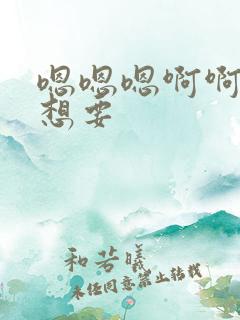 嗯嗯嗯啊啊
想要
和若曦
未经同意禁止转载